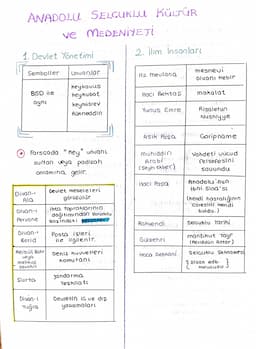 ANADOLU SELÇUKLU KÜLTÜR
ve MEDENİYETİ
1. Devlet Yönetimi
Semboller
Unvanlar
BSD ile
aynı
Keykavus
Keykubat
Keyhüsrev
Rükneddin
Farsçada "Key" unvanı
sultan veya padişah
anlamına gelir.
Divan-ı
Ala
Devlet meseleleri
görüşülür
Divan-ı
Pervane
İkta topraklarının
dağıtımından sorumlu
Divan-ı
Berid
Posta işleri
ile ilgilenir.
veya
Deniz kuvvetleri
komutanı
Şurta
Jandarma
teşkilatı
Divan-ı
Tuğra
Devletin iç ve dış
yazışmaları
2. İlim İnsanları
Hz Mevlana
mesnevi
Divanı Kebir
Hacı Bektaş
makalat
Yunus Emre
Risaletün
Nushiyye
Aşık Paşa
Garipname
muhiddin
Arabi
Vahdeti vücud
felsefesini
savundu
Hacı Paşa
Anadolu'nun
İbni Sina'sı
Ravendi
Selçuklu Tarihi
Gülşehri
mantıkut Tayr
Hoca Dehhani
Selçuklu Şehnamesi